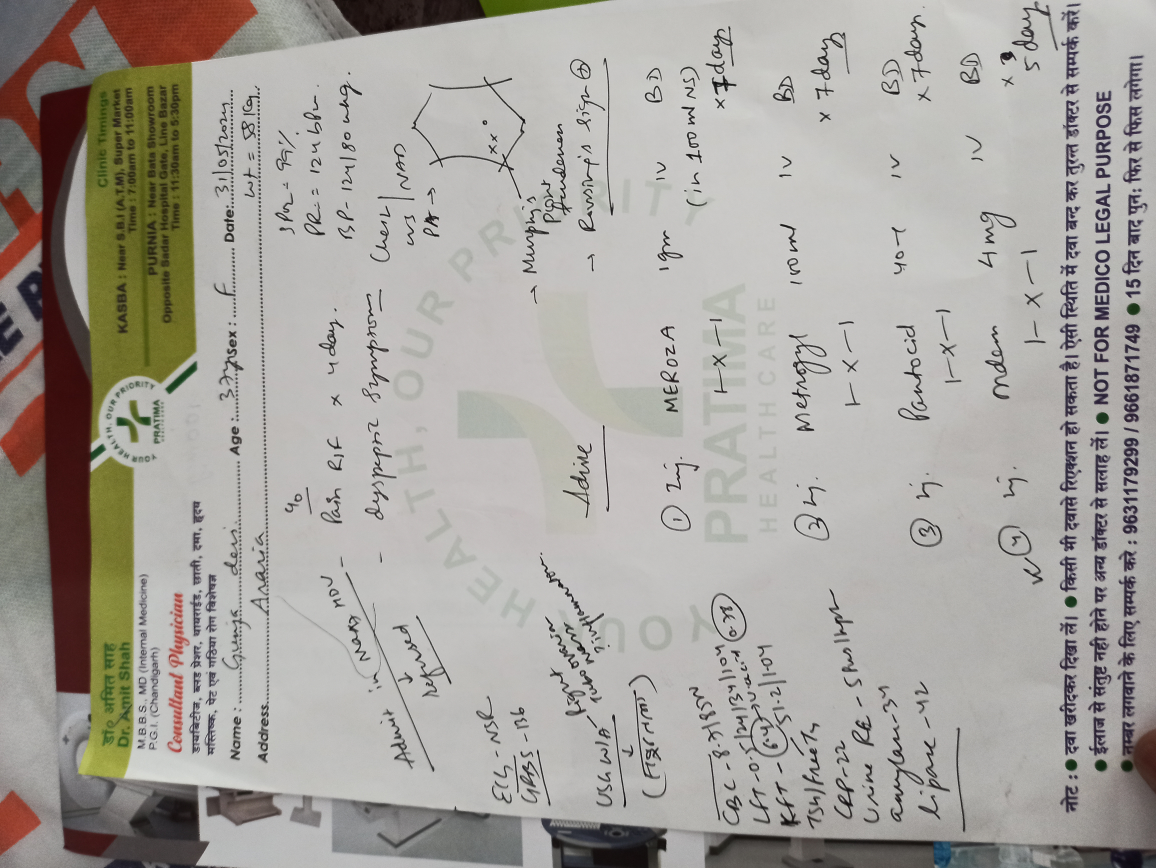 डा॰ अमित साह
Dr. Amit Shah
M.B.B.S., MD (Internal Medicine)
P.G.I. (Chandigarh)
Consultant Physician
डायबिटीज, ब्लड प्रेशर, थायराईड, छाती, दमा, हृदय
मस्तिष्क, पेट एवं गठिया रोग विशेषज्ञ
YOUR HEALTH, OUR PRIORITY
PRATIMA
Clinic Timings
KASBA : Near S.B.I (A.T.M), Super Market
Time : 7:00am to 11:00am
PURNIA : Near Bata Showroom
Opposite Sadar Hospital Gate, Line Bazar
Time : 11:30am to 5:30pm
Name : Gunja devi Age : 37yr Sex : F Date: 31/05/2024
Address. Araria wt = 58 kg
SPO2 = 99%
PR = 124 bpm.
BP - 124/80 mmHg.
Chest
CVS | NAD
PA →
c/o
- Pain RIF x 4 day.
- dyspeptic symptom
Admit in
↓
Refused
→ Murphy's
→ Rovsing's sign ⊕
ECG - NSR
GRBS - 136
USG W/A - Right ovarian
CBC - 8.3/85N
LFT - 0.5/24/34/104
KFT -
TSH/Free T4
CRP - 22
Urine RE -
amylase - 34
lipase - 42
Advice
① Inj. MEROZA 1gm IV BD
1-x-1 (in 100ml NS) x 7 days
② Inj. Metrogyl 100ml IV BD
1-x-1 x 7 days
③ Inj. Pantocid 40 IV BD
1-x-1 x 7 days.
④ Inj. ondem 4mg IV BD
1-x-1 x 5 days
YOUR HEALTH, OUR PRIORITY
PRATIMA
HEALTHCARE
नोट : ● दवा खरीदकर दिखा लें। ● किसी भी दवा से रिएक्शन हो सकता है। ऐसी स्थिति में दवा बन्द कर तुरन्त डॉक्टर से सम्पर्क करें।
● ईलाज से संतुष्ट नही होने पर अन्य डॉक्टर से सलाह लें। ● NOT FOR MEDICO LEGAL PURPOSE
● नम्बर लगवाने के लिए सम्पर्क करे : 9631179299 / 9661871749 ● 15 दिन बाद पुन: फिर से फिस लगेगा।